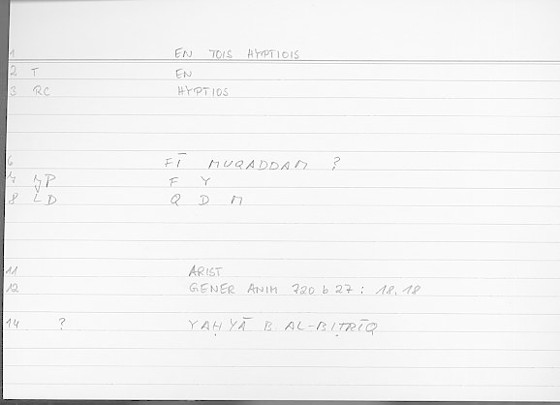 1 EN TOIS HYPTIOIS
2 T EN
3 RC HYPTIOS
6 FĪ MUQADDAM ?
7 P F Y
8 LD Q D M
11 ARIST
12 GENER ANIM 720 b 27 : 18,18
14 ? YAḤYĀ B. AL-BIṬRĪQ